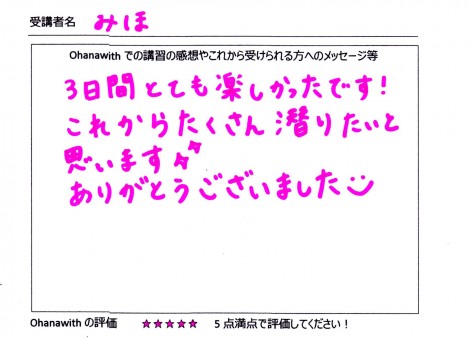 受講者名 みほ
Ohanawith での講習の感想やこれから受けられる方へのメッセージ等
3日間とても楽しかったです!
これからたくさん潜りたいと
思います
ありがとうございました
Ohanawith の評価 ★★★★★ 5 点満点で評価してください！